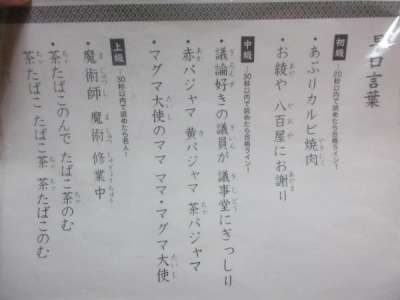 早口言葉
初級 -20秒以内で読めたら合格ライン!-
・あぶりカルビ焼肉
・お綾や 八百屋にお謝り
中級 -30秒以内で読めたら合格ライン!-
・議論好きの議員が 議事堂にぎっしり
・赤パジャマ 黄パジャマ 茶パジャマ
・マグマ大使のママ ママ・マグマ大使
上級 -30秒以内で読めたら名人!-
・魔術師 魔術 修業中
・茶たばこのんで たばこ茶のむ
茶たばこ たばこ茶 茶たばこのむ